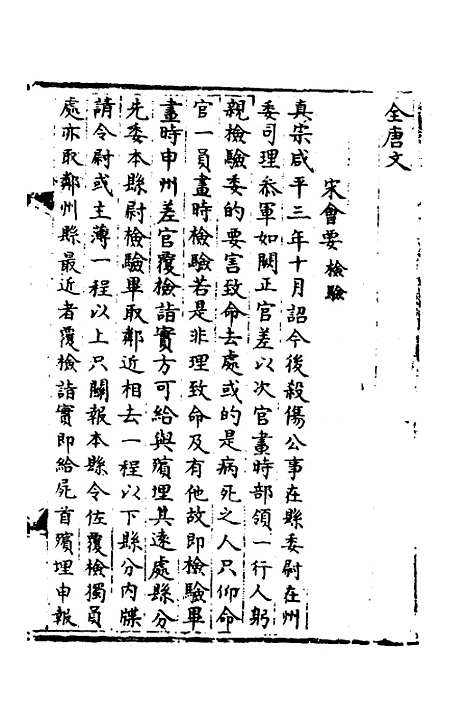 全唐文
宋會要 檢驗
真宗咸平三年十月詔今後殺傷公事在縣委尉在州
委司理叅軍如闕正官差以次官畫時部領一行人躬
親檢驗委的要害致命去處或的是病死之人只仰命
官一員畫時檢驗若是非理致命及有他故即檢驗畢
畫時申州差官覆檢詣實方可給與殯埋其遠處縣分
先委本縣尉檢驗畢取鄰近相去一程以下縣分內牒
請令尉或主薄一程以上只關報本縣令佐覆檢獨員
處亦取鄰州縣最近者覆檢詣實即給屍首殯埋申報